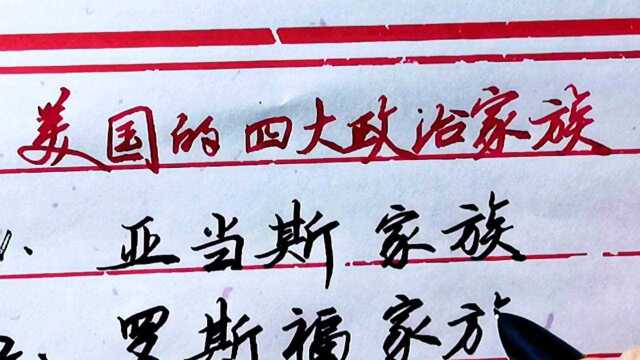 美国的四大政治家族
1、亚当斯家族
2、罗斯福家族